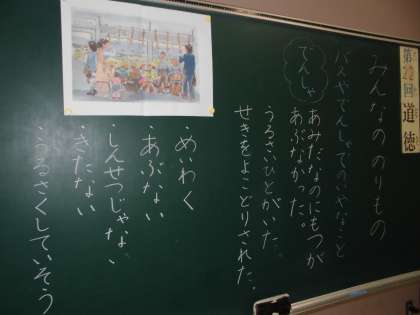 第22回 道徳
みんなの のりもの
バスやでんしゃでのいやなこと
でんしゃ
あみだなのにもつが
あぶなかった。
うるさいひとがいた。
せきをよことりされた。
めいわく
あぶない
しんせつじゃない
きたない
うるさくしていそう